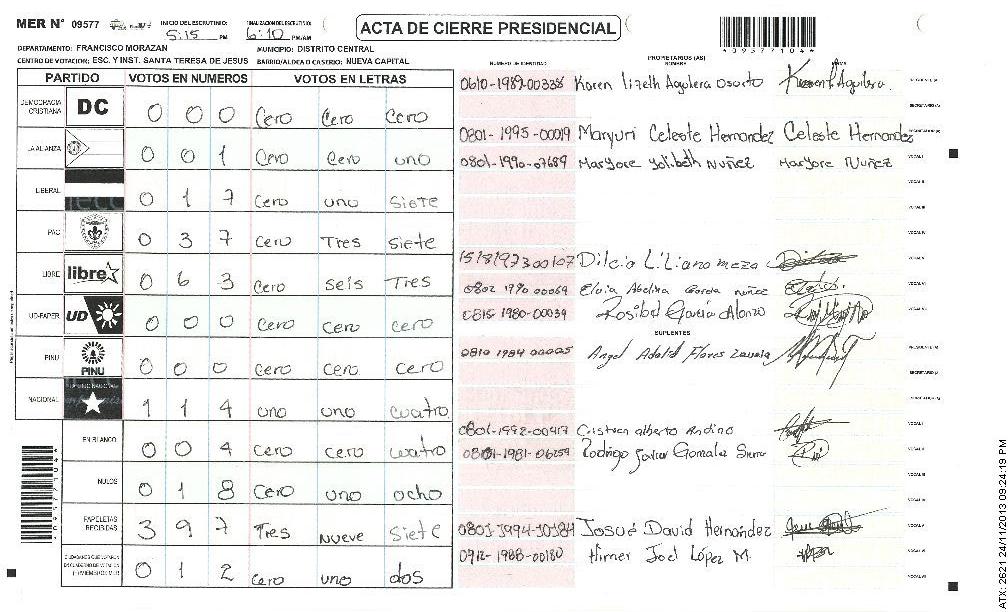 MER N° 09577
INICIO DEL ESCRUTINIO: 5:15 PM
FINALIZACION DEL ESCRUTINIO: 6:10 PM/AM
ACTA DE CIERRE PRESIDENCIAL
*09577104*
DEPARTAMENTO: FRANCISCO MORAZAN
MUNICIPIO: DISTRITO CENTRAL
CENTRO DE VOTACION: ESC. Y INST. SANTA TERESA DE JESUS
BARRIO/ALDEA O CASTRIO: NUEVA CAPITAL
PARTIDO VOTOS EN NUMEROS VOTOS EN LETRAS
NUMERO DE IDENTIDAD PROPIETARIOS (AS) NOMBRE FIRMA
DEMOCRACIA CRISTIANA DC 0 0 0 Cero Cero Cero
LA ALIANZA 0 0 1 Cero Cero uno
LIBERAL 0 1 7 Cero uno siete
PAC 0 3 7 Cero Tres siete
LIBRE libre 0 6 3 Cero seis Tres
UD-FAPER UD 0 0 0 Cero Cero Cero
PINU PINU 0 0 0 Cero Cero Cero
NACIONAL 1 1 4 uno uno cuatro
EN BLANCO 0 0 4 Cero cero cuatro
NULOS 0 1 8 Cero uno ocho
PAPELETAS RECIBIDAS 3 9 7 Tres Nueve Siete
CIUDADANOS QUE VOTARON EN CUADERNO DE VOTACION (+) MIEMBROS MER 0 1 2 Cero uno dos
0610-1989-00338 Karen lizeth Aguilera Osorto Karen Aguilera
0801-1995-00019 Maryuri Celeste Hernandez Celeste Hernandez
0801-1990-07689 Maryore Yolibeth Nuñez Maryore Nuñez
Dilcia Liliano meza
0802 1990 00069 Elvia Abelina Garcia nuñez
0815 1980-00039 Rosibel Garcia Alonzo
SUPLENTES
0810 1984 00005 Angel Adalid Flores
0801-1992-00417 Cristian alberto Andino
0801-1981-06259 Rodrigo Javier
Josué David Hernández
0912-1988-00180 Hirner Joel López M.
*09577104*
ATX: 2621 24/11/2013 09:24:19 PM